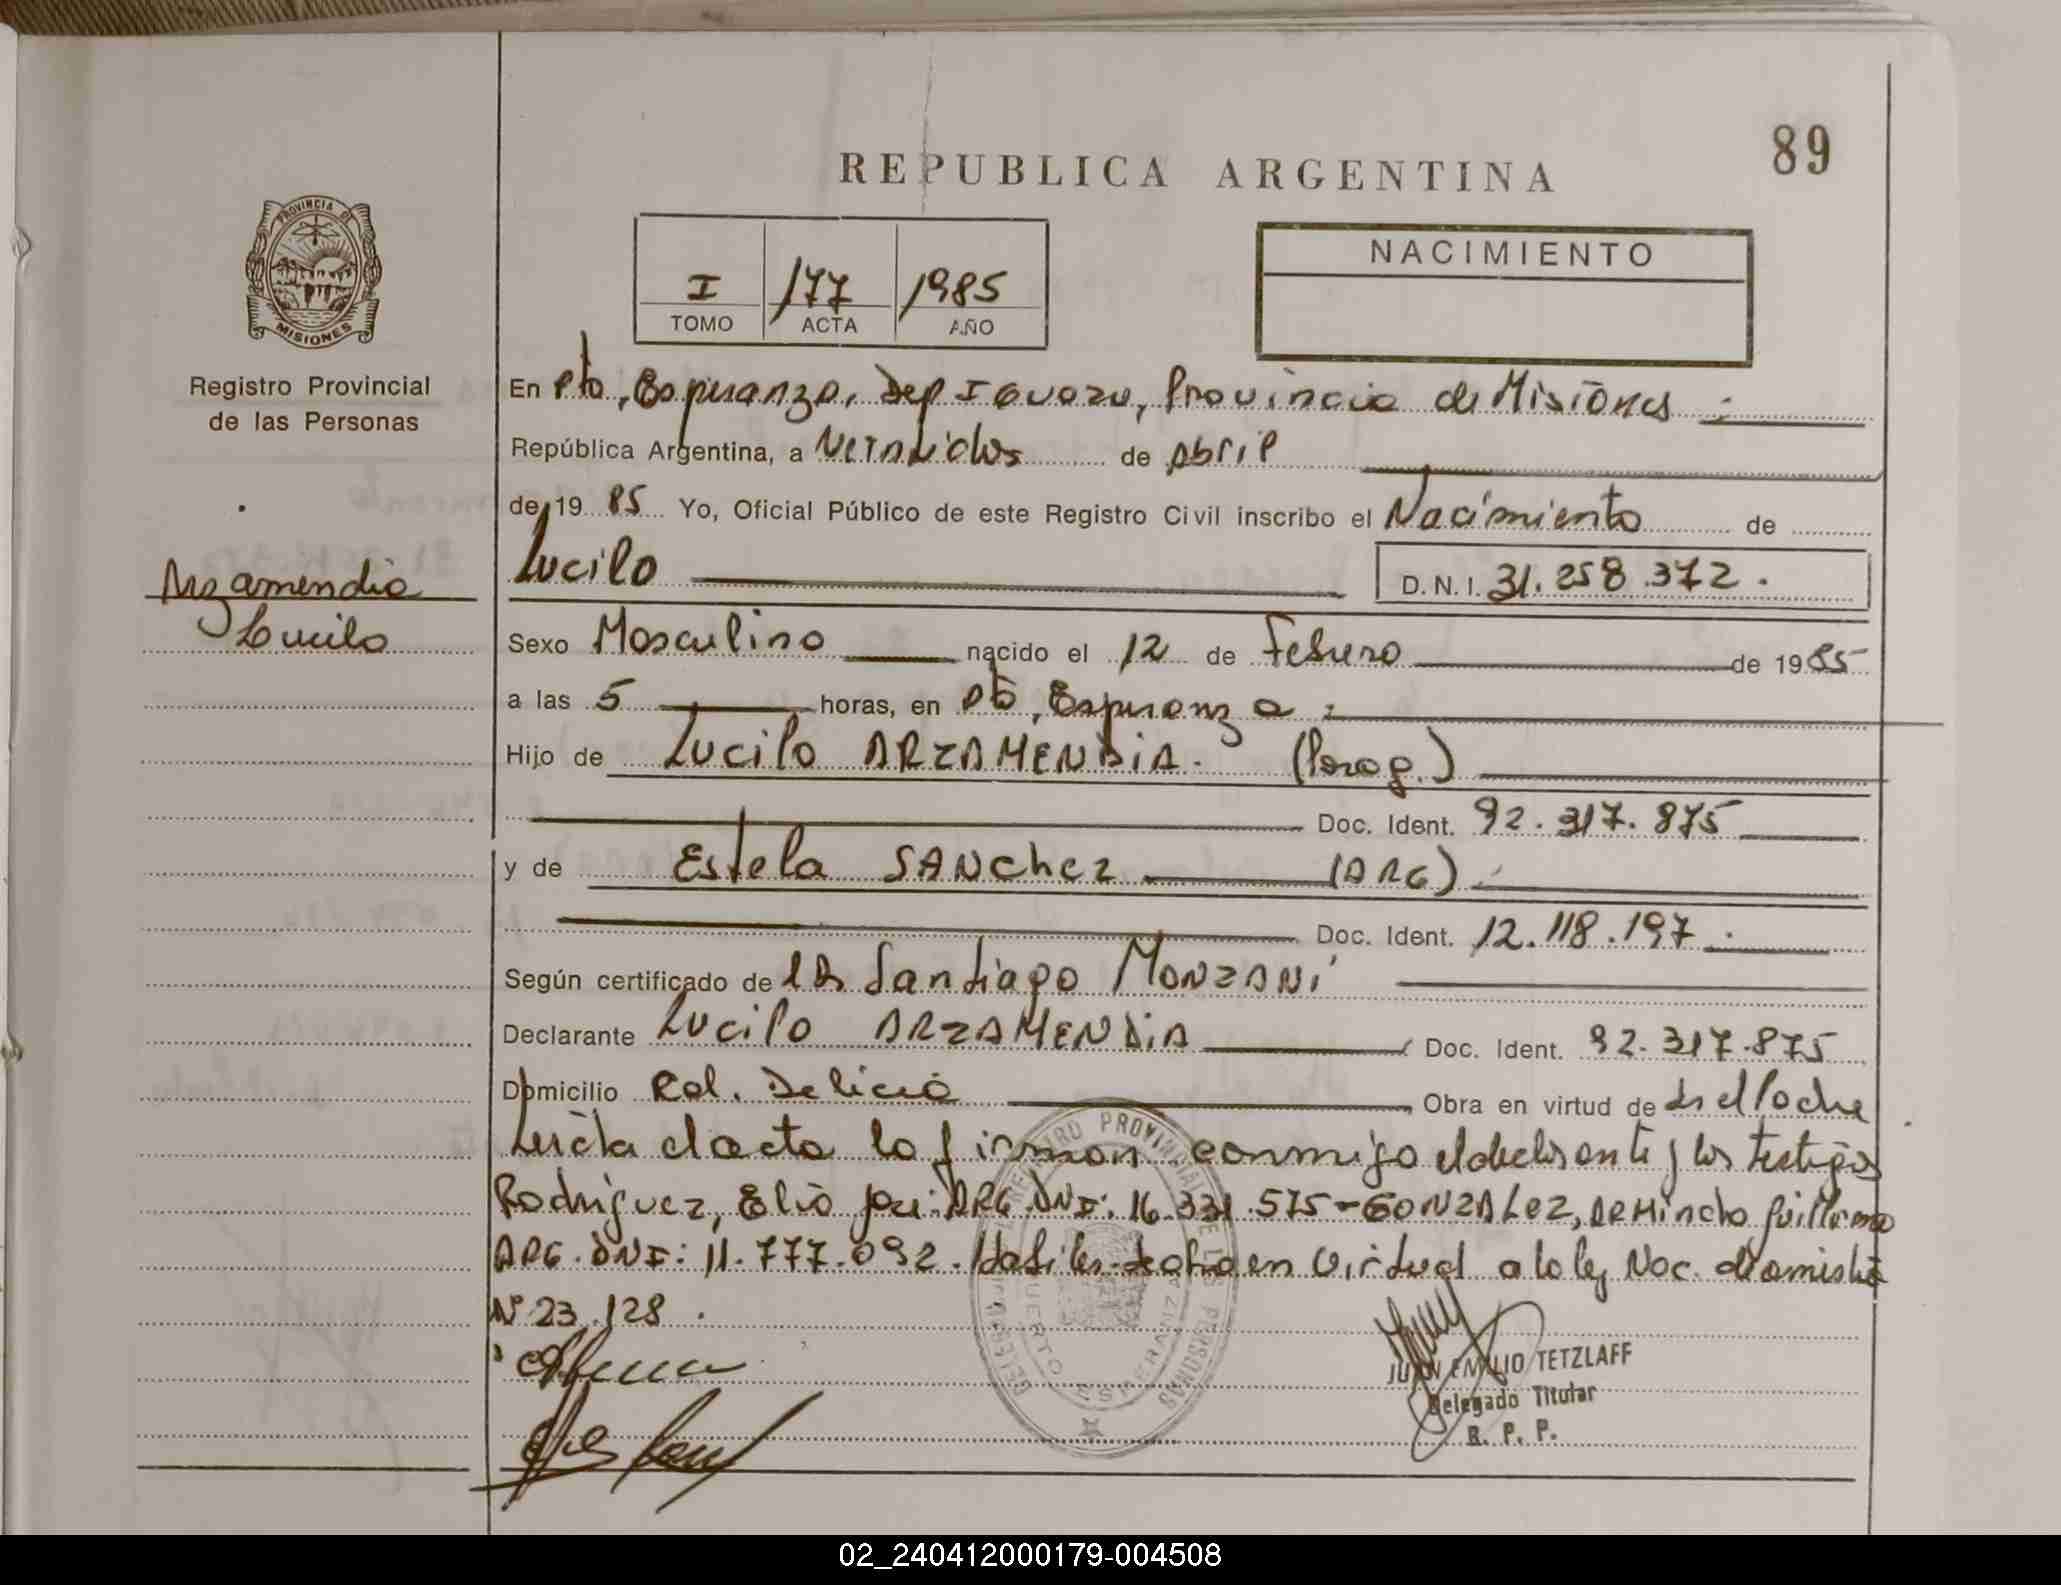 89
REPUBLICA ARGENTINA
PROVINCIA DE
MISIONES
Registro Provincial
de las Personas
I 177 1985
TOMO ACTA AÑO
NACIMIENTO
En Pto, Esperanza, Dep Iguazu, Provincia de Misiones
República Argentina, a Veintidos de Abril
de 19 85 Yo, Oficial Público de este Registro Civil inscribo el Nacimiento de
Arzamendia
Lucilo
Lucilo D.N.I. 31.258.372.
Sexo Masculino nacido el 12 de Febrero de 1985
a las 5 horas, en Pto, Esperanza
Hijo de Lucilo ARZAMENDIA. (Parag.)
Doc. Ident. 92.317.875
y de Estela SANCHEZ (ARG)
Doc. Ident. 12.118.197
Según certificado de Santiago MONZANI
Declarante Lucilo ARZAMENDIA Doc. Ident. 92.317.875
Domicilio Col. Delicia Obra en virtud de
Leida el acta la firman conmigo el declarante y los testigos
Rodriguez, Elio José: ARG. DNI: 16.331.575-GONZALEZ, ARMindo Guillermo
ARG. DNI: 11.777.092. en Virtud a la ley Nac. de amistia
Nº 23.128.
REGISTRO PROVINCIAL DE LAS PERSONAS
PUERTO ESPERANZA
JUAN EMILIO TETZLAFF
Delegado Titular
R. P. P.
02_240412000179-004508